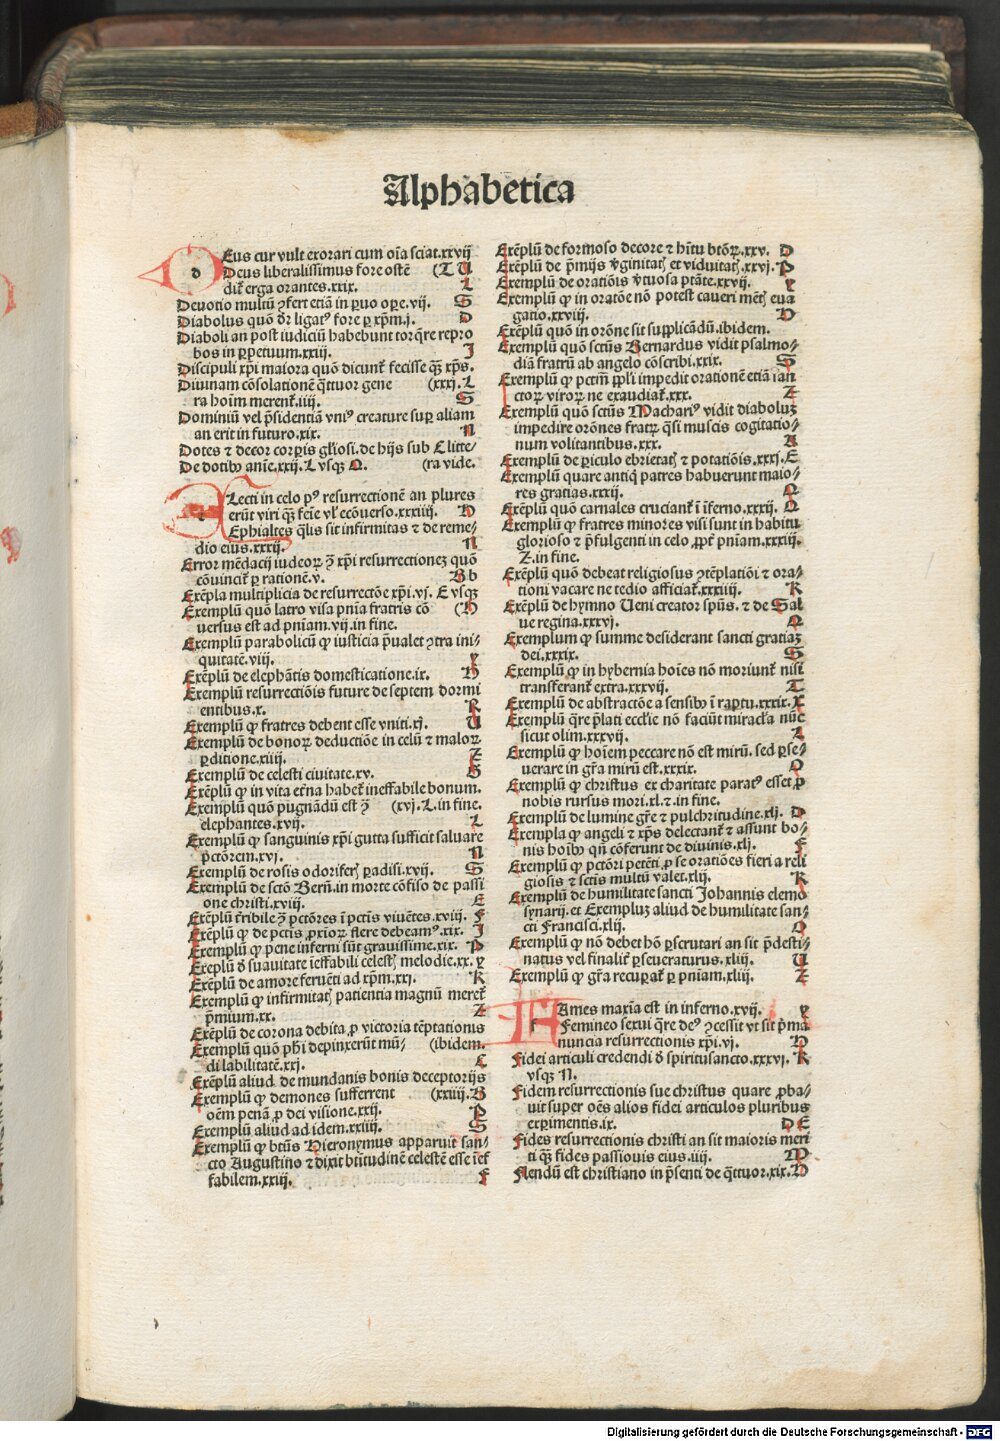 Alphabetica
Deus cur vult exorari cum oĩa sciat.xxvij
Deus liberalissimus fore ostẽ (T U
dit̃ erga orantes.xxix. L
Deuotio multũ ꝯfert etiã in ꝑuo oꝑe.vij. S
Diabolus quõ dr̃ ligatꝰ fore ꝑ xp̃m.j. D
Diaboli an post iudiciũ habebunt torq̃re repro
bos in ꝑpetuum.xxiij. J
Discipuli xp̃i maiora quõ dicunt̃ fecisse q̃ꝫ xp̃s.
Diuinam cõsolationẽ q̃ttuor gene (xxxj.L
ra hoĩm merent̃.iiij. S
Dominiũ vel p̃sidentiã vniꝰ creature suꝑ aliam
an erit in futuro.xix. N
Dotes ⁊ decor corꝑis gl̃iosi.de hijs sub C litte/
De dotibꝰ anĩe.xxij.L vsqꝫ Q. (ra vide.
Electi in celo pꝰ resurrectionẽ an plures
erũt viri q̃ꝫ fẽie vl̓ ecõuerso.xxxiiij. H
Ephialtes q̃lis sit infirmitas ⁊ de reme-
dio eius.xxxij. N
Error mẽdacij iudeoꝝ ꝯ̃ xp̃i resurrectionẽ quõ
cõuincit̃ ꝑ rationẽ.v. B b
Exẽpla multiplicia de resurrectõe xp̃i.vj. E vsqꝫ
Exemplũ quõ latro visa pñia fratris cõ (H
uersus est ad pñiam.vij.in fine.
Exemplũ parabolicũ ꝙ iusticia p̃ualet ꝯtra ini-
quitatẽ.viij. Y
Exẽplũ de elephãtis domesticatione.ix. H
Exemplũ resurrectiõis future de septem dormi
entibus.x. R
Exemplũ ꝙ fratres debent esse vniti.xj. U
Exemplũ de bonoꝝ deductiõe in celũ ⁊ maloꝝ
ꝑditione.xiiij. Z
Exemplũ de celesti ciuitate.xv. G
Exẽplũ ꝙ in vita etr̃na habet̃ ineffabile bonum.
Exemplũ quõ pugnãdũ est ꝯ̃ (xvj.L.in fine.
elephantes.xvij. L
Exemplũ ꝙ sanguinis xp̃i gutta sufficit saluare
pctõrem.xvj. N
Exemplũ de rosis odorifer̃ ꝑadisi.xvij. S
Exemplũ de sctõ Berñ.in morte cõfiso de passi
one christi.xviij. E
Exẽplũ tr̃ribile ꝯ̃ pctõres ĩ pctĩs viuẽtes.xviij. F
Exẽplũ ꝙ de pctis ꝓxioꝝ flere debeamꝰ.xix. J
Exemplũ ꝙ pene inferni sũt grauissime.xix. P
Exẽplũ ð suauitate ĩeffabili celest̃ melodie.xx. Y
Exẽplũ de amore feruẽti ad xp̃m.xxj. K
Exemplũ ꝙ infirmitat̃ patientia magnũ meret̃
p̃mium.xx. Z
Exẽplũ de corona debita ꝓ victoria tẽptationis
Exemplũ quõ ph̃i depinxerũt mũ- (ibidem.
di labilitatẽ.xxj. C
Exẽplũ aliud de mundanis bonis deceptorijs
Exemplũ ꝙ demones sufferrent (xxiiij.B
oẽm penã ꝓ dei visione.xxij. P
Exemplũ aliud ad idem.xxiiij. S
Exemplũ ꝙ btũs Hieronymus apparuit san-
cto Augustino ⁊ dixit btitudinẽ celestẽ esse ĩef
fabilem.xxiij. F
Exẽplũ de formoso decore ⁊ hñtu btõꝝ.xxv. D
Exẽplũ de p̃mijs v̓ginitat̃ et viduitat̃.xxvj. P
Exemplũ de oratiõis v̓tuosa ptãte.xxvij. Y
Exemplũ ꝙ in oratõe nõ potest caueri mẽt̃ eua
gatio.xxviij. H
Exẽplũ quõ in orõne sit supplicãdũ.ibidem.
Exemplũ quõ sctũs Bernardus vidit psalmo-
diã fratrũ ab angelo cõscribi.xxix. S
Exemplũ ꝙ pctm̃ ppl̃i impedit orationẽ etiã san
ctoꝝ viroꝝ ne exaudiat̃.xxx. Z
Exemplũ quõ sctũs Machariꝰ vidit diabolũ
impedire orõnes fratꝝ q̃si muscis cogitatio-
num volitantibus.xxx. A
Exemplũ de ꝑiculo ebrietat̃ ⁊ potatiõis.xxxj. E
Exemplũ quare antiq̃ patres habuerunt maio-
res gratias.xxxij. Q
Exẽplũ quõ carnales cruciant̃ ĩ ĩferno.xxxij. Q
Exemplũ ꝙ fratres minores visi sunt in habitu
glorioso ⁊ p̃fulgenti in celo ꝓpt̃ pñiam.xxxiij.
Z.in fine.
Exẽplũ quõ debeat religiosus ꝯtẽplatiõi ⁊ ora-
tioni vacare ne tedio afficiat̃.xxxiiij. K
Exẽplũ de hymno Ueni creator spũs. ⁊ de Sal
ue regina.xxxvj. Q
Exemplum ꝙ summe desiderant sancti gratiaꝫ
dei.xxxix. S
Exemplũ ꝙ in hybernia hoĩes nõ moriunt̃ nisi
transferant̃ extra.xxxvij. T
Exemplũ de abstractõe a sensibꝰ ĩ raptu.xxxix. X
Exemplũ q̃re p̃lati eccl̃ie nõ faciũt miracl̃a nũc
sicut olim.xxxvij. L
Exemplũ ꝙ hoĩem peccare nõ est mirũ. sed ꝑse-
uerare in gr̃a mirũ est.xxxix. O
Exemplũ ꝙ christus ex charitate paratꝰ esset ꝓ
nobis rursus mori.xl.Z.in fine.
Exemplũ de lumine gr̃e ⁊ pulchritudine.xlj. D
Exempla ꝙ angeli ⁊ xp̃s delectant̃ ⁊ assunt bo-
nis hoĩbꝰ qñ cõferunt de diuinis.xlj. F
Exemplũ ꝙ pctõri petẽti ꝓ se oratiões fieri a reli
giosis ⁊ sctis multũ valet.xlij. K
Exemplũ de humilitate sancti Johannis elemo
synarij.et Exempluꝫ aliud de humilitate san-
cti Francisci.xlij. O
Exemplũ ꝙ nõ debet hõ ꝑscrutari an sit p̃desti-
natus vel finalit̃ ꝑseueraturus.xliij. U
Exemplũ ꝙ gr̃a recuꝑat̃ ꝑ pñiam.xliij. Z
Fames maxĩa est in inferno.xvij. Y
Femineo sexui q̃re deꝰ ꝯcessit vt sit p̃ma
nuncia resurrectionis xp̃i.vj. H
Fidei articuli credendi ð spiritusancto.xxxvj. K
vsqꝫ N.
Fidem resurrectionis sue christus quare ꝓba-
uit super oẽs alios fidei articulos pluribus
exꝑimentis.ix. D E
Fides resurrectionis christi an sit maioris meri
ti q̃ꝫ fides passionis eius.iiij. M
Flendũ est christiano in p̃senti de q̃ttuor.xix. H
Digitalisierung gefördert durch die Deutsche Forschungsgemeinschaft - DFG